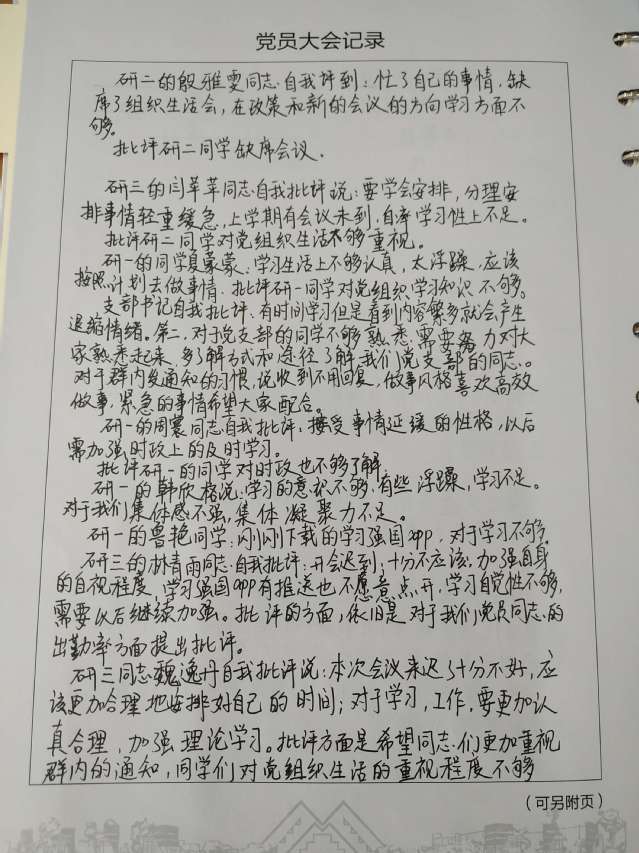 党员大会记录
研二的殷雅雯同志自我评到：忙了自己的事情，缺
席了组织生活会，在政策和新的会议的方向学习方面不
够。
批评研二同学缺席会议.
研三的闫苹苹同志自我批评说：要学会安排，分理安
排事情轻重缓急，上学期有会议未到，自率学习性上不足。
批评研二同学对党组织生活不够重视。
研一的同学夏蒙蒙：学习生活上不够认真，太浮躁，应该
按照计划去做事情.批评研一同学对党组织学习知识不够。
支部书记自我批评，有时间学习但是看到内容繁多就会产生
退缩情绪。第二，对于党支部的同学不够熟悉，需要努力对大
家熟悉起来，多了解方式和途径了解我们党支部的同志。
对于群内发通知的习惯，说收到不用回复，做事风格喜欢高效
做事，紧急的事情希望大家配合。
研一的周寰同志自我批评，接受事情延缓的性格，以后
需加强时政上的及时学习。
批评研一的同学对时政也不够了解.
研一的韩欣格说：学习的意识不够，有些浮躁，学习不足。
对于我们集体感不强，集体凝聚力不足。
研一的鲁艳同学：刚刚下载的学习强国app，对于学习不够。
研三的林青雨同志自我批评：开会迟到，十分不应该.加强自身
的自视程度，学习强国app有推送也不愿意点开，学习自觉性不够，
需要以后继续加强。批评的方面，依旧是对于我们党员同志的
出勤率方面提出批评。
研三同志魏逸丹自我批评说：本次会议来迟了十分不好，应
该更加合理地安排好自己的时间；对于学习，工作，要更加认
真合理，加强理论学习。批评方面是希望同志们更加重视
群内的通知，同学们对党组织生活的重视程度不够
（可另附页）